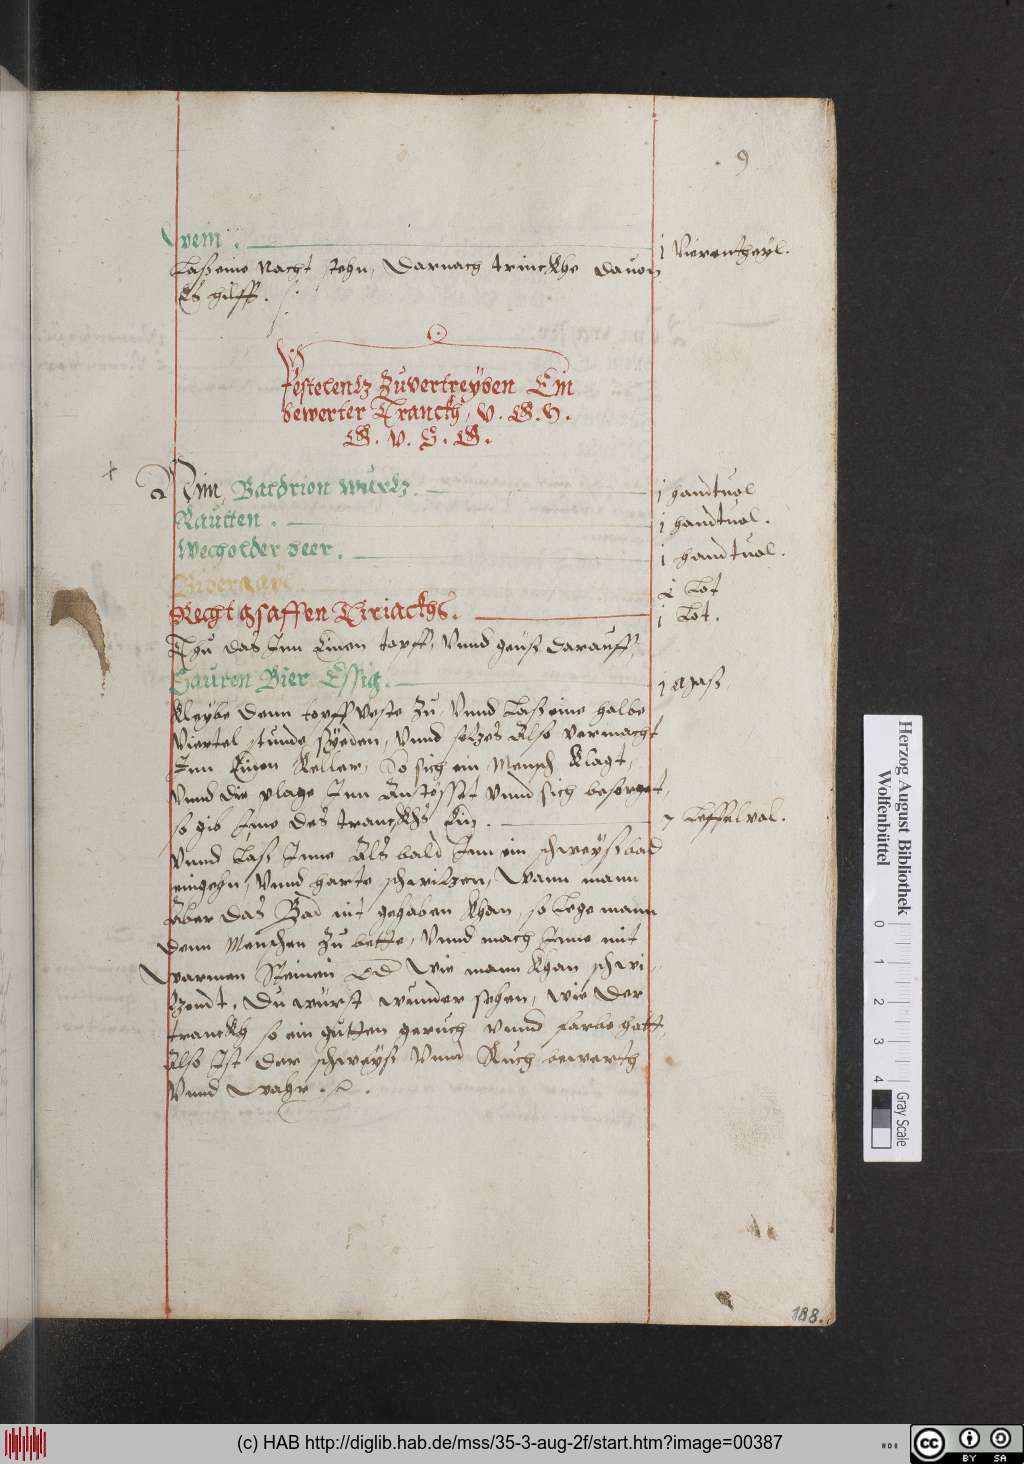 9
Wein. j Vierentheyl.
Laß eine Nacht stehn, Darnach trinckhe dauon
Es hilfft.
Pestelentz Zuvertreyben Ein
bewerter Tranckh, V. G. H.
G. V. S. G.
Nim, Baldrion wurtz. j handtuol
Rautten. j handtuol.
Wecholder beer. j handtuol.
Lot
Recht gsaffen Tiriackhs. j Lot.
Thu das Inn Einen topff, Vnnd geuß darauff,
Sauren Bier Essig. 1 Maß.
Kleybe denn topff veste Zu, Vnnd Laß eine halbe
Viertel stunde syeden, Vnnd setzes Also vermacht
Inn Einen Keller, So sich ein Mensch Klagt,
Vnnd die plage Inn Anstosset vnnd sich besorget,
so gib Ime des tranckhs Ein. 7 Leffel vol.
Vnnd Laß Inne Als bald Inn ein schweyßbad
eingehn, Vnnd harte schwitzen, Wann mann
Aber das Bad nit gehaben Khan, so Lege mann
denn Menschen Zu bette, Vnnd mach Inne mit
Warmen Steinen Wie mann Khan schwi-
tzendt. Du würst wunder sehen, wie Der
tranckh so ein gutten geruch vnnd farbe hatt,
Also Ist der schweyß Vnnd Ruch bewerth
Vnnd Wahr.
188.
Herzog August Bibliothek
Wolfenbüttel
0 1 2 3 4
Gray Scale
(c) HAB http://diglib.hab.de/mss/35-3-aug-2f/start.htm?image=00387
cc BY SA